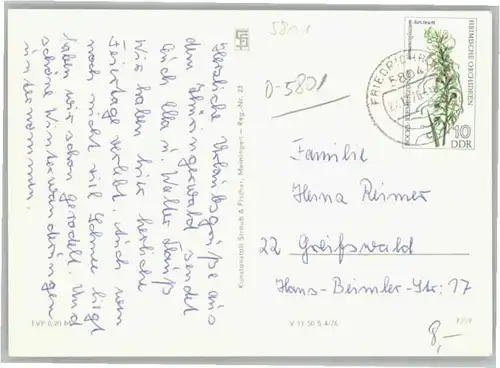 Herzliche Urlaubsgrüße aus
dem Thüringerwald sendet
Euch Ella u. Walter
Wir haben hier herrliche
Feiertage verlebt. Auch wenn
noch nicht viel Schnee liegt
haben wir schon gerodelt. Und
schöne Winterwanderungen
unternommen.
EVP 0,20 M
Kunstanstalt Straub & Fischer, Meiningen - Reg.-Nr. 23
V 11 50 S 4/76
5801
O-5801
FRIEDRICHRODA
5804
HEIMISCHE ORCHIDEEN
10
DDR
Familie
Herna Reimer
22 Greifswald
Hans-Beimler-Str: 17
8,-